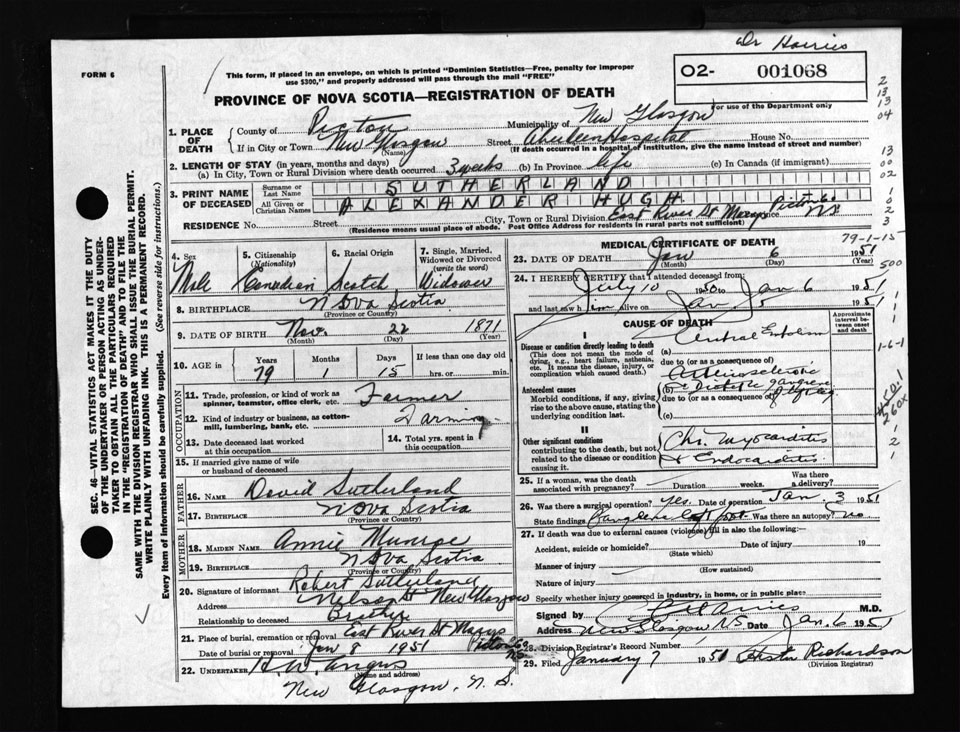 Dr Harries
FORM 6
This form, if placed in an envelope, on which is printed "Dominion Statistics—Free, penalty for improper
use $300," and properly addressed will pass through the mail "FREE"
02- 001068
For use of the Department only
PROVINCE OF NOVA SCOTIA—REGISTRATION OF DEATH
2
13
13
04
13
00
02
1
0
2
3
1. PLACE OF DEATH
County of Pictou Municipality of New Glasgow
If in City or Town New Glasgow Street Aberdeen Hospital House No.
(Name) (If death occurred in a hospital or institution, give name instead of street and number)
2. LENGTH OF STAY (in years, months and days)
(a) In City, Town or Rural Division where death occurred 3 weeks (b) In Province life (c) In Canada (if immigrant)
3. PRINT NAME OF DECEASED
Surname or Last Name SUTHERLAND
All Given or Christian Names ALEXANDER HUGH
RESIDENCE: No. Street City, Town or Rural Division East River St Marys Pictou Co NS
(Residence means usual place of abode. Post Office Address for residents in rural parts not sufficient)
4. Sex Male
5. Citizenship (Nationality) Canadian
6. Racial Origin Scotch
7. Single, Married, Widowed or Divorced (write the word) Widower
8. BIRTHPLACE Nova Scotia
(Province or Country)
9. DATE OF BIRTH Nov. 22 1871
(Month) (Day) (Year)
10. AGE in Years 79 Months 1 Days 15 If less than one day old
hrs. or min.
OCCUPATION
11. Trade, profession, or kind of work as spinner, teamster, office clerk, etc. Farmer
12. Kind of industry or business, as cotton-mill, lumbering, bank, etc. Farming
13. Date deceased last worked at this occupation
14. Total yrs. spent in this occupation
15. If married give name of wife or husband of deceased
FATHER
16. Name David Sutherland
17. Birthplace Nova Scotia
(Province or Country)
MOTHER
18. MAIDEN NAME Annie Munroe
19. BIRTHPLACE Nova Scotia
(Province or Country)
20. Signature of informant Robert Sutherland
Address Nelson St New Glasgow
Relationship to deceased Brother
21. Place of burial, cremation or removal East River St Marys Pictou Co NS
Date of burial or removal Jan 8 1951
22. UNDERTAKER H. W. Angus
(Name and Address)
New Glasgow, N. S.
MEDICAL CERTIFICATE OF DEATH
79-1-15
23. DATE OF DEATH Jan 6 1951
(Month) (Day) (Year)
500
24. I HEREBY CERTIFY that I attended deceased from:
July 10 1950 to Jan 6 1951
and last saw him alive on Jan 5 1951
CAUSE OF DEATH
Approximate interval between onset and death
I
Disease or condition directly leading to death
(This does not mean the mode of dying, e.g., heart failure, asthenia, etc. It means the disease, injury, or complication which caused death.)
(a) Cerebral Embolism
1-6-1
due to (or as a consequence of)
Antecedent causes
Morbid conditions, if any, giving rise to the above cause, stating the underlying condition last.
(b) Arteriosclerotic
Diabetic gangrene
due to (or as a consequence of)
(c)
260X
II
Other significant conditions contributing to the death, but not related to the disease or condition causing it.
Chr. Myocarditis
+ Endocarditis
25. If a woman, was the death associated with pregnancy? Duration weeks. Was there a delivery?
26. Was there a surgical operation? Yes. Date of operation Jan. 3 1951
State findings Gangrene left foot Was there an autopsy? No
27. If death was due to external causes (violence) fill in also the following:
Accident, suicide or homicide? Date of injury 19
(State which)
Manner of injury
(How sustained)
Nature of injury
Specify whether injury occurred in industry, in home, or in public place
Signed by M.D.
Address New Glasgow N.S. Date Jan. 6 1951
28. Division Registrar's Record Number
29. Filed January 7 1951 Richardson
(Division Registrar)
SEC. 46—VITAL STATISTICS ACT MAKES IT THE DUTY
OF THE UNDERTAKER OR PERSON ACTING AS UNDER-
TAKER TO OBTAIN ALL THE PARTICULARS REQUIRED
IN THE "REGISTRATION OF DEATH" AND TO FILE THE
SAME WITH THE DIVISION REGISTRAR WHO SHALL ISSUE THE BURIAL PERMIT.
WRITE PLAINLY WITH UNFADING INK. THIS IS A PERMANENT RECORD.
Every item of information should be carefully supplied. (See reverse side for instructions.)